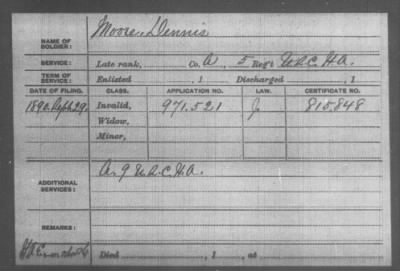 NAME OF SOLDIER: Moore, Dennis
SERVICE: Late rank, Co. A, 5 Reg't U.S.C.H.A.
TERM OF SERVICE: Enlisted , 1 Discharged , 1
DATE OF FILING. CLASS. APPLICATION NO. LAW. CERTIFICATE NO.
1890 Sept 29. Invalid, 971.521 J. 815.848
Widow,
Minor,
ADDITIONAL SERVICES: A. 9 U.S.C.H.A.
REMARKS:
Died , 1 , at